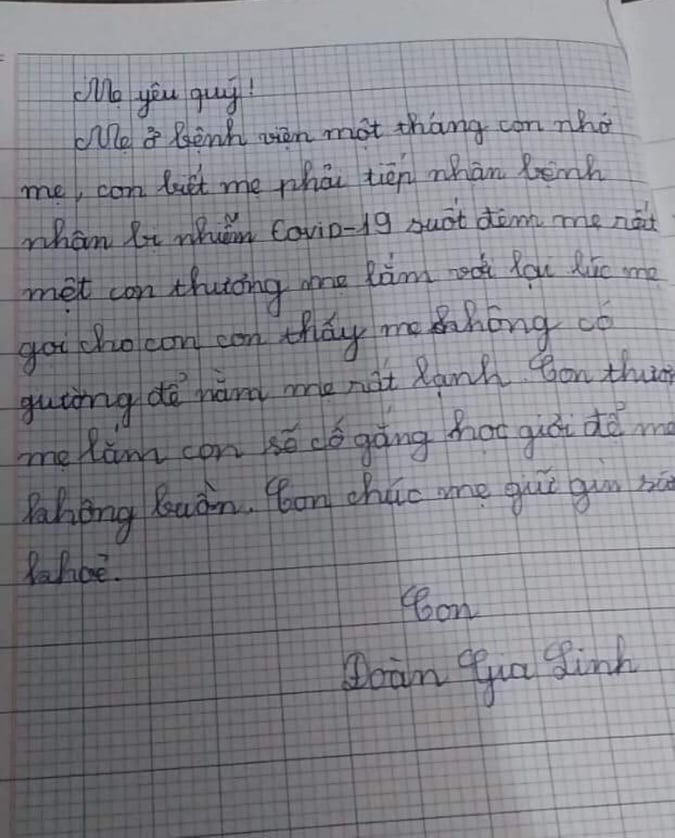 Mẹ yêu quý!
Mẹ ở bệnh viện một tháng con nhớ
mẹ, con biết mẹ phải tiếp nhận bệnh
nhân bị nhiễm Covip-19 suốt đêm mẹ rất
mệt con thương mẹ lắm với lại lúc mẹ
gọi cho con con thấy mẹ không có
gường để nằm mẹ rất lạnh. Con thươn
mẹ lắm con sẽ cố gắng học giỏi để mẹ
không buồn. Con chúc mẹ giữ gìn sứ
khoẻ.
Con
Đoàn Gia Linh